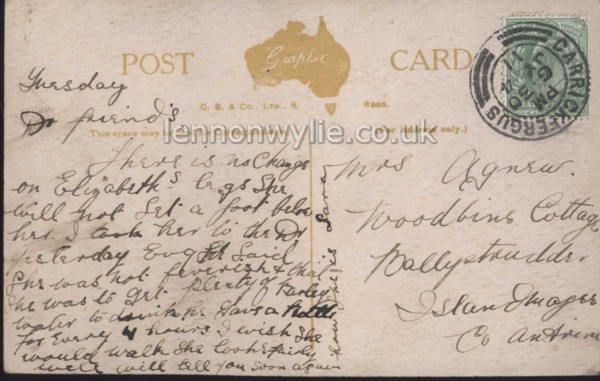 POST CARD
Graphic
C. B. & Co., Ltd., S. Regd.
This space may be (For address only.)
lennonwylie.co.uk
CARRICKFERGUS
PM
Tuesday
Dr friend's
There is no Change
on Elizabeths legs She
will not Set a foot below
her. I took her to the Dr
yesterday Evg He Said
She was not feverish & that
She was to get plenty of Barley
water to drink he Gave a
for Every 4 hours I wish She
would walk She looks fairly
well will tell you Soon again
how she is
Mrs Agnew.
Woodbine Cottage
Ballystrudder
Islandmagee
Co Antrim